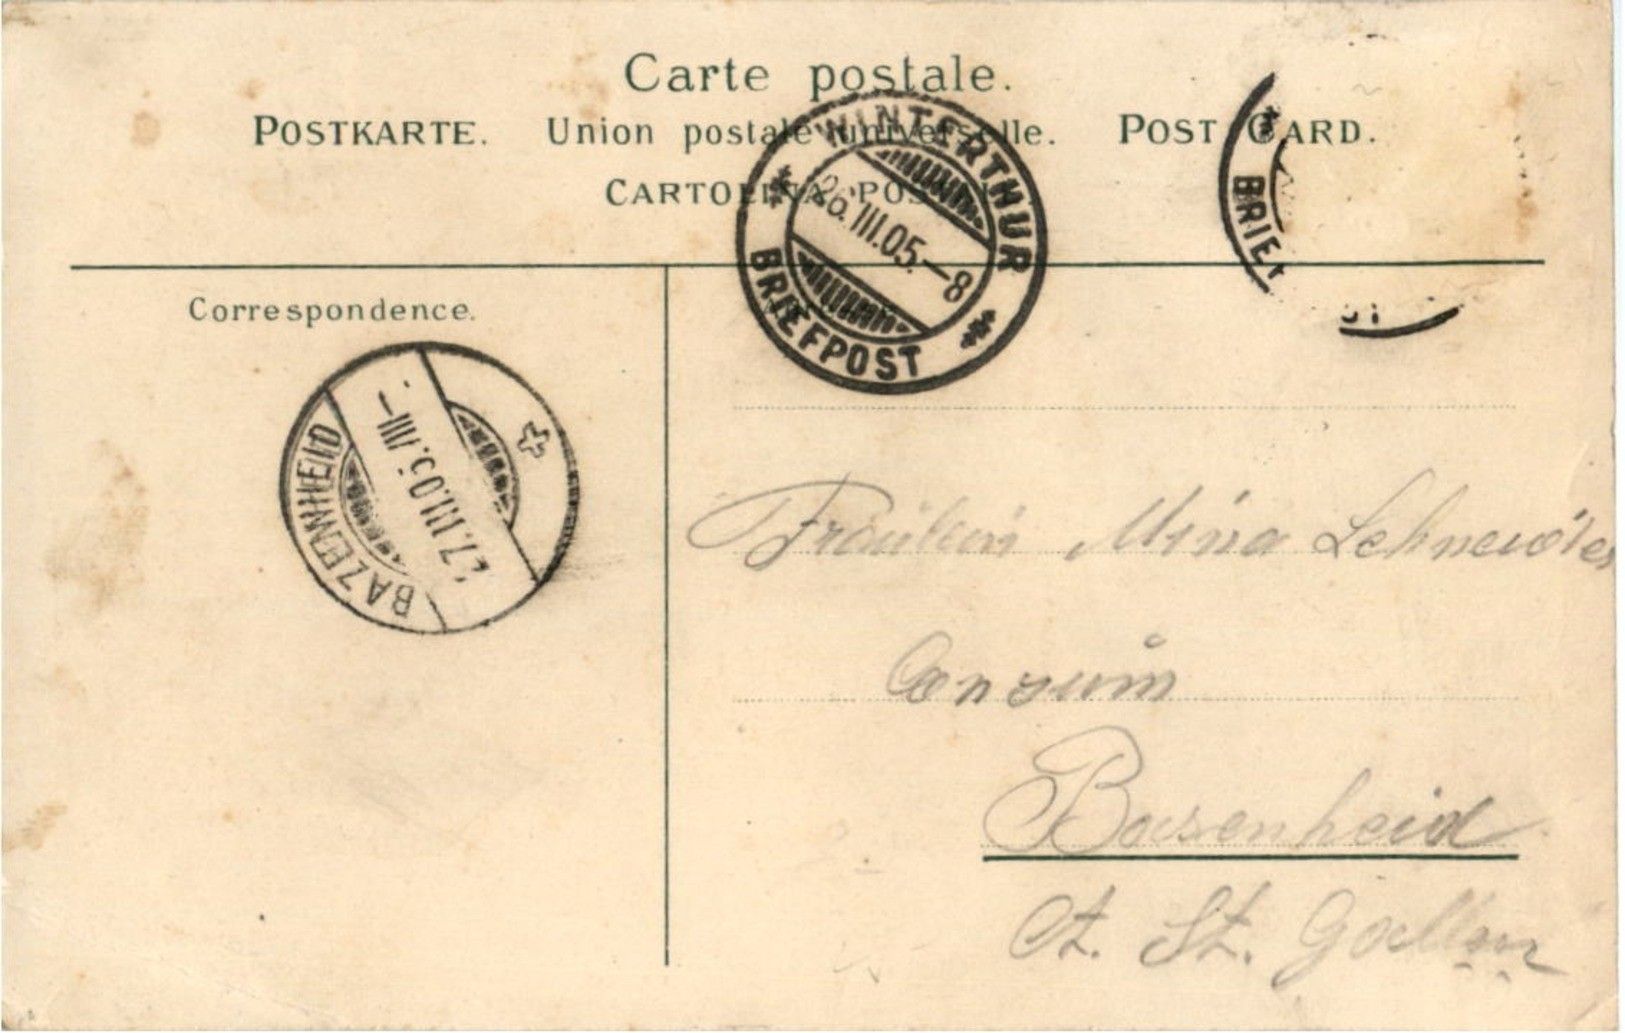 Carte postale.
POSTKARTE. Union postale universelle. POST CARD.
CARTOLINA POSTALE
WINTERTHUR
26.III.05.-8
BRIEFPOST
BRIEF
Correspondence.
BAZENHEID
27.III.05.
Fräulein Mina Schneider
Consum
Bazenheid
Ct. St. Gallen